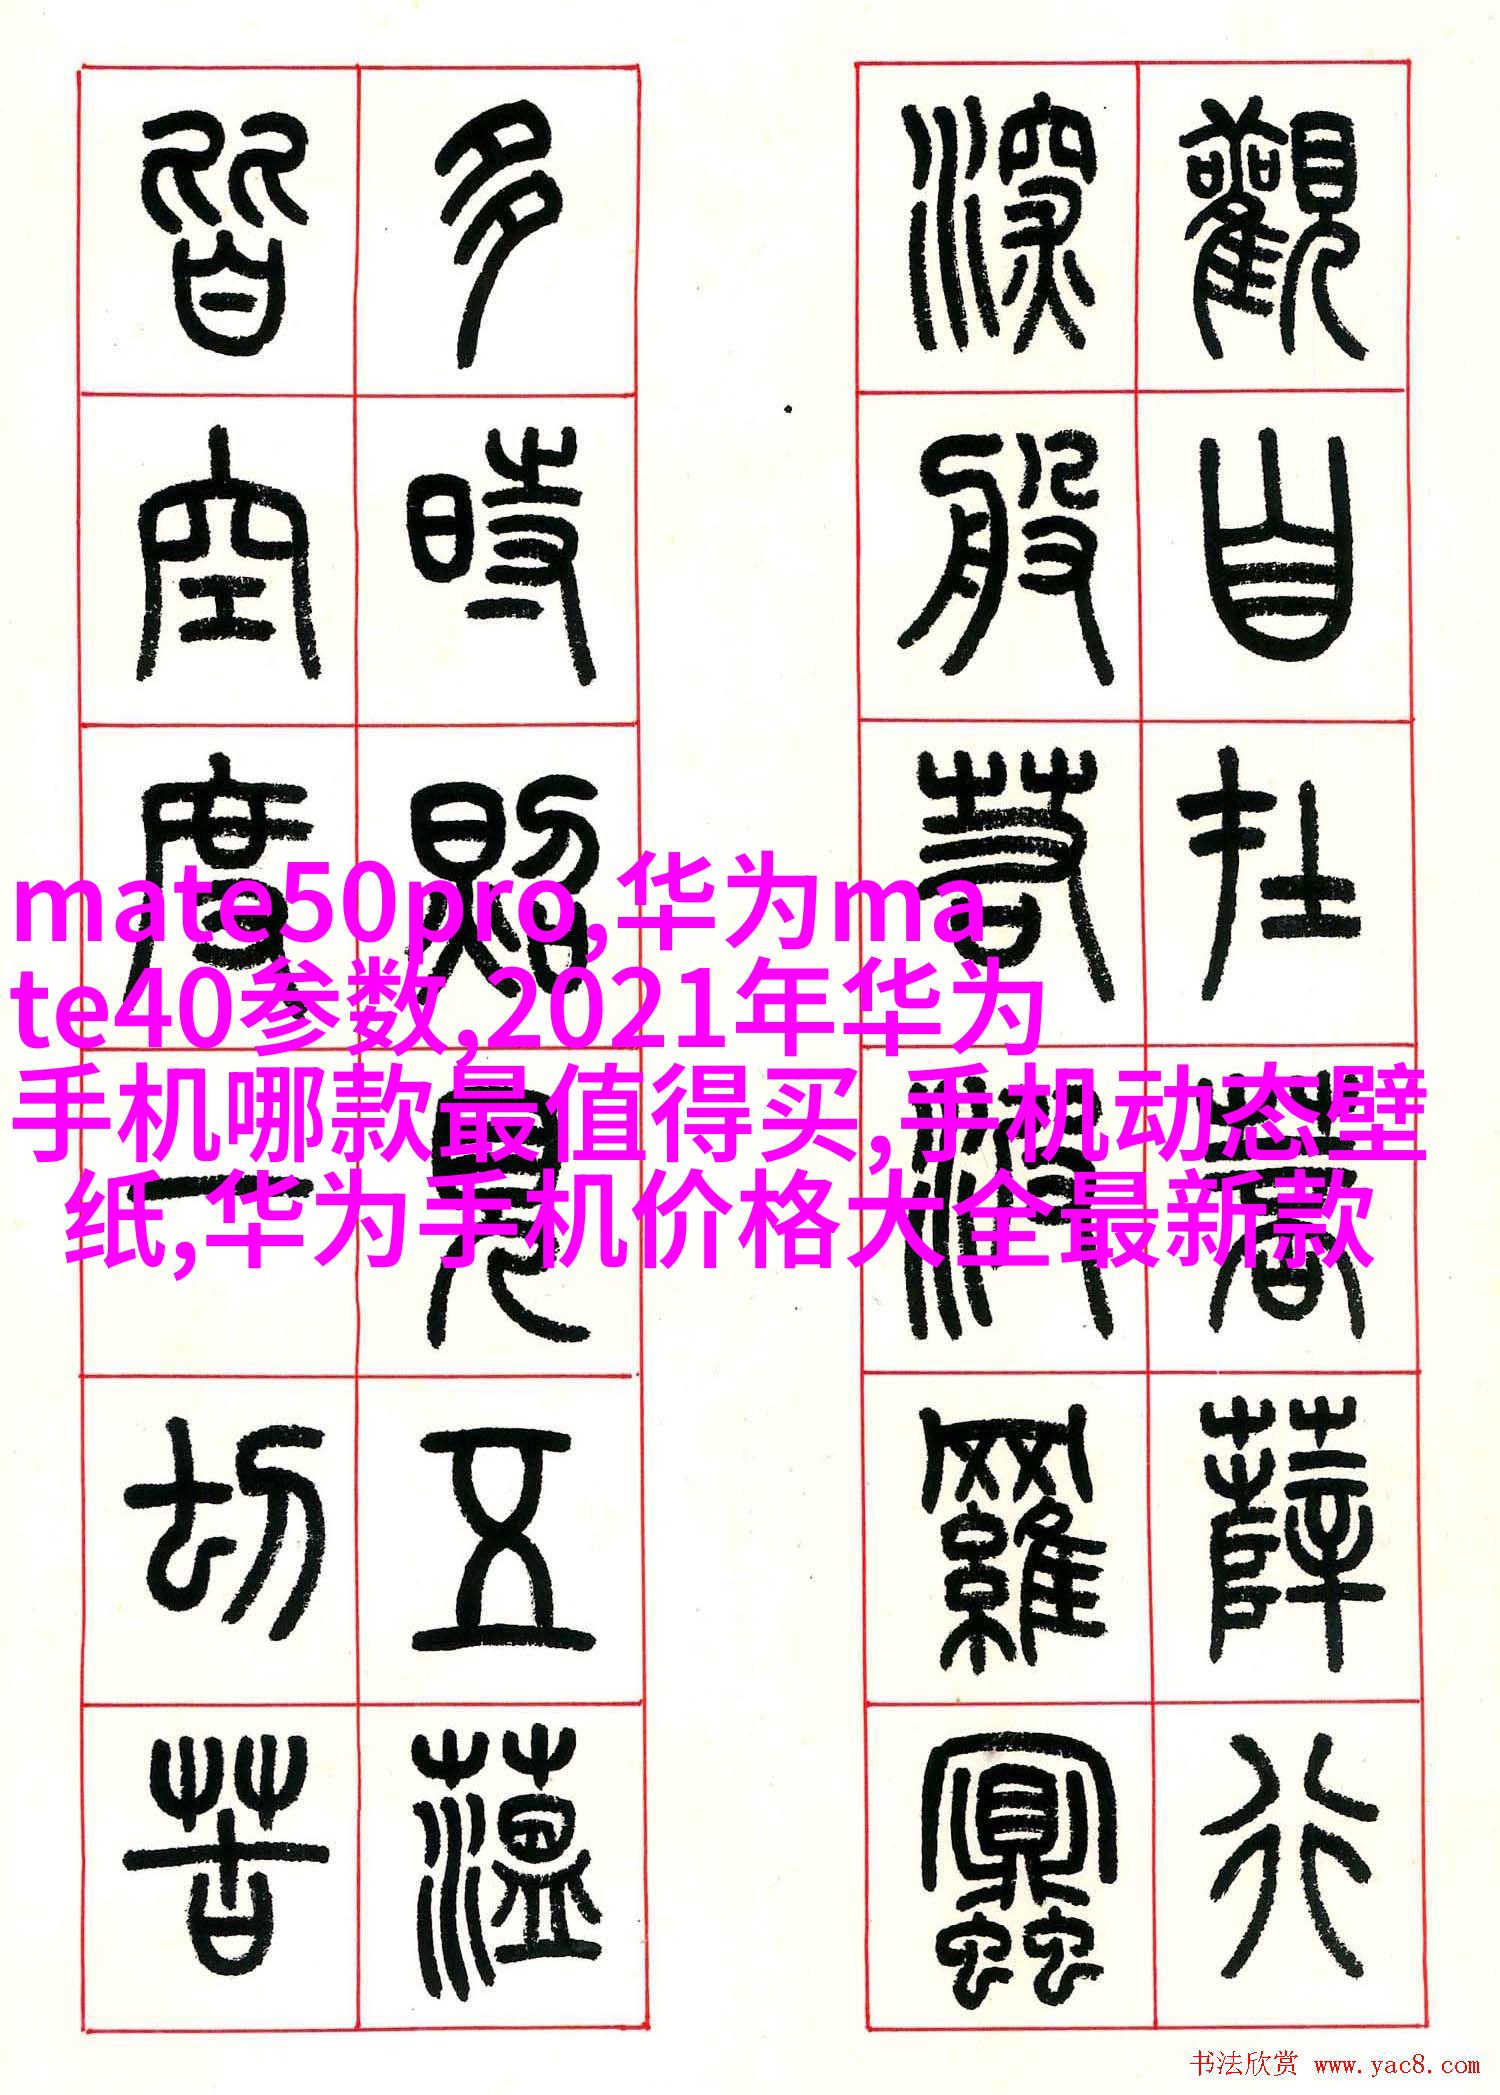 觀自在菩薩行
深般若波羅蜜
多時照見五蘊
皆空度一切苦
mate50pro,华为ma
te40参数,2021年华为
手机哪款最值得买,手机动态壁
纸,华为手机价格大全最新款
书法欣赏 www.yac8.com